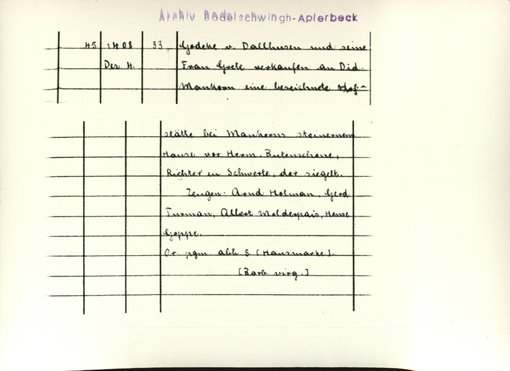 Archiv Bodelschwingh-Aplerbeck
45 1408 33, Godeke v. Dallhusen und seine
Dez. 4. Frau Grete verkaufen an Did.
Mankorn eine bezeichnete Hof-
stätte bei Mankorns steinernem
Hause vor Herm. Butenschone,
Richter in Schwerte, der siegelt.
Zeugen: Arnd Holman, Gerd
Turman, Albert Moldespais, Henne
Goppe.
Or. pgm. abh. S. [Hausmarke].
[Barb. virg.]